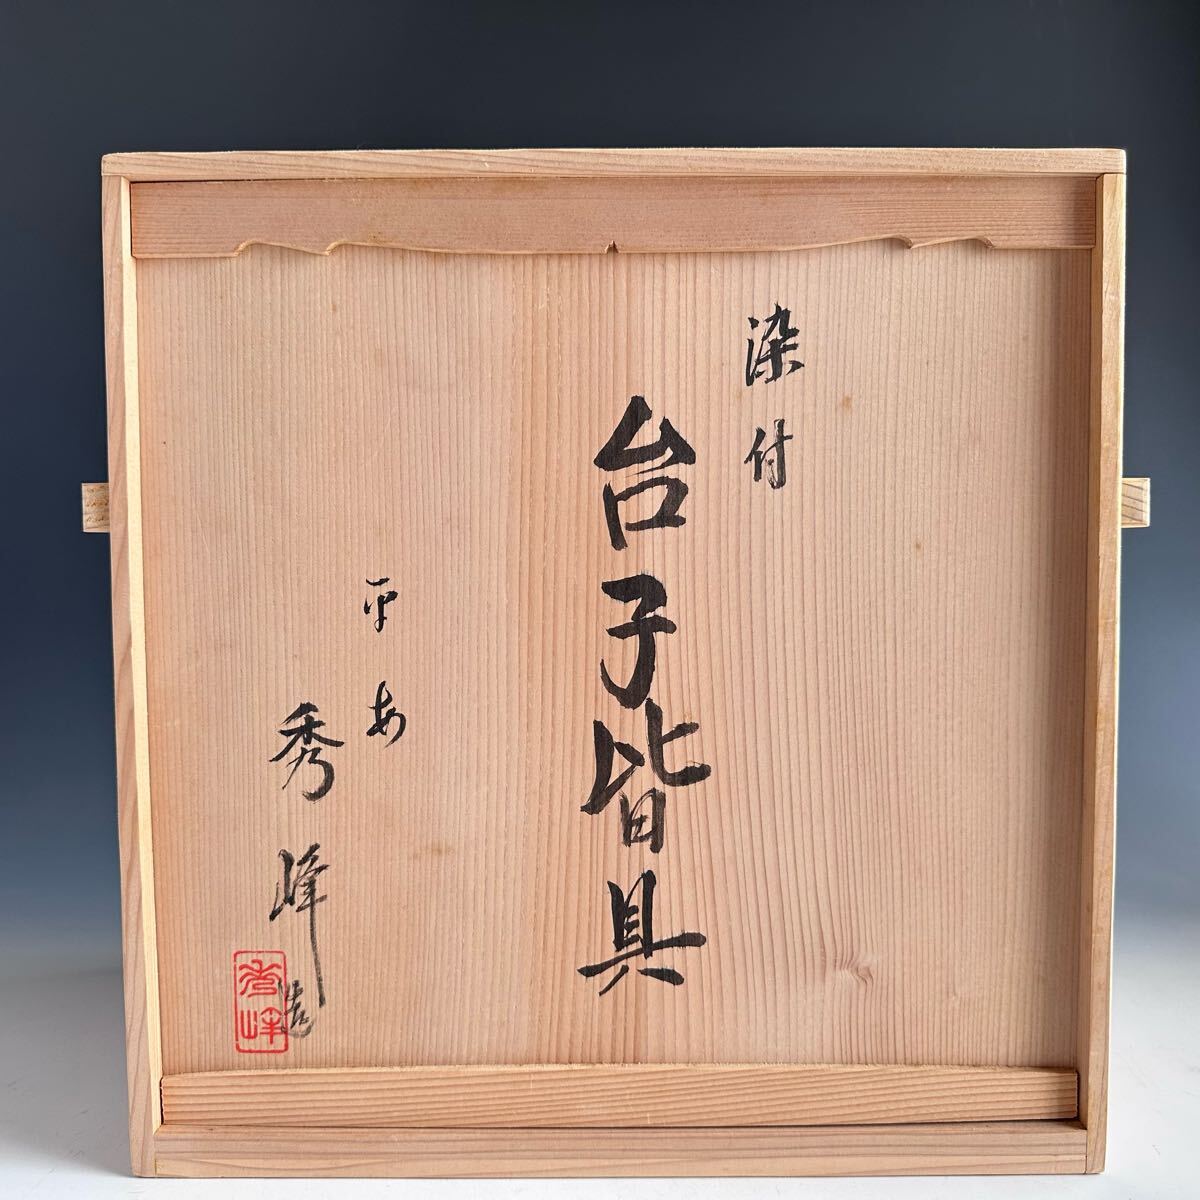 染付
台子皆具
平安
秀峰造
秀峰